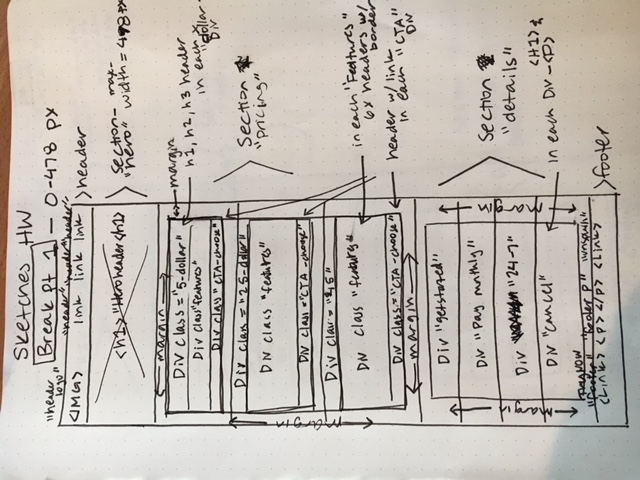 Sketches HW
Break pt 1 – 0-478 px
"header logo" "header" "header" "header"
<IMG> link link link
header
<h1> "Hero header <h1>
Section- "hero" max-width = 478px
margin
margin
Div class = "5-dollar"
Div class "features"
Div class "CTA-choose"
h1, h2, h3 header in each "dollar" Div
Div class = "25-dollar"
Div class "features"
Div class = "CTA-choose"
Section "pricing"
margin
Div class =
Div class "features"
Div class = "CTA-choose"
in each "Features" 6x headers w/ border
header w/ link in each "CTA" Div
margin
Div "getstarted"
Div "Pay mnthly"
Div "24-7"
Div "cancel"
margin
margin
Section "details"
in each Div - <H1> & <P>
"footer" "footer p" "unspwn"
<Link> <p> </p> <Link>
footer